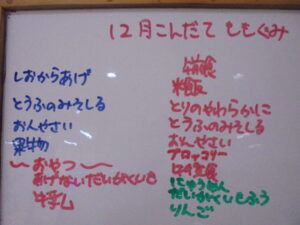 12月こんだて ももぐみ
しおからあげ
とうふのみそしる
おんやさい
果物
〜おやつ〜
あげないだいがくいも
牛乳
午前食
米飯
とりのやわらかに
とうふのみそしる
おんやさい
ブロッコリー
にゅうめん
だいがくいもふう
りんご